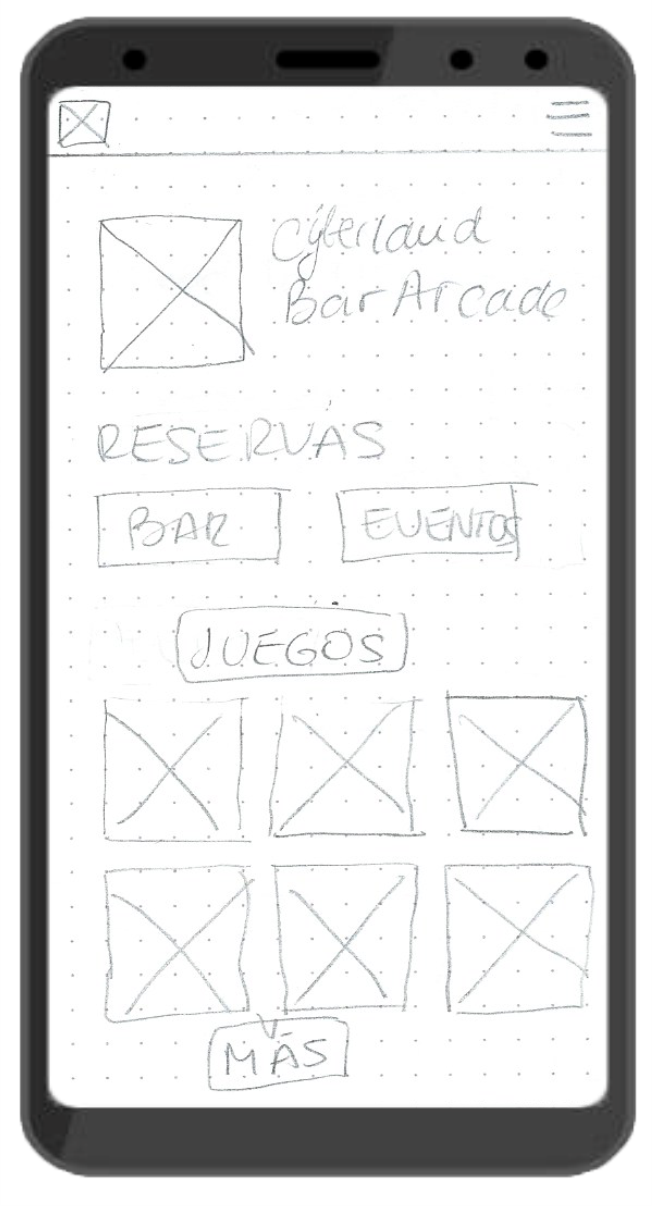 Cyberland
Bar Arcade
RESERVAS
BAR
EVENTOS
JUEGOS
MÁS